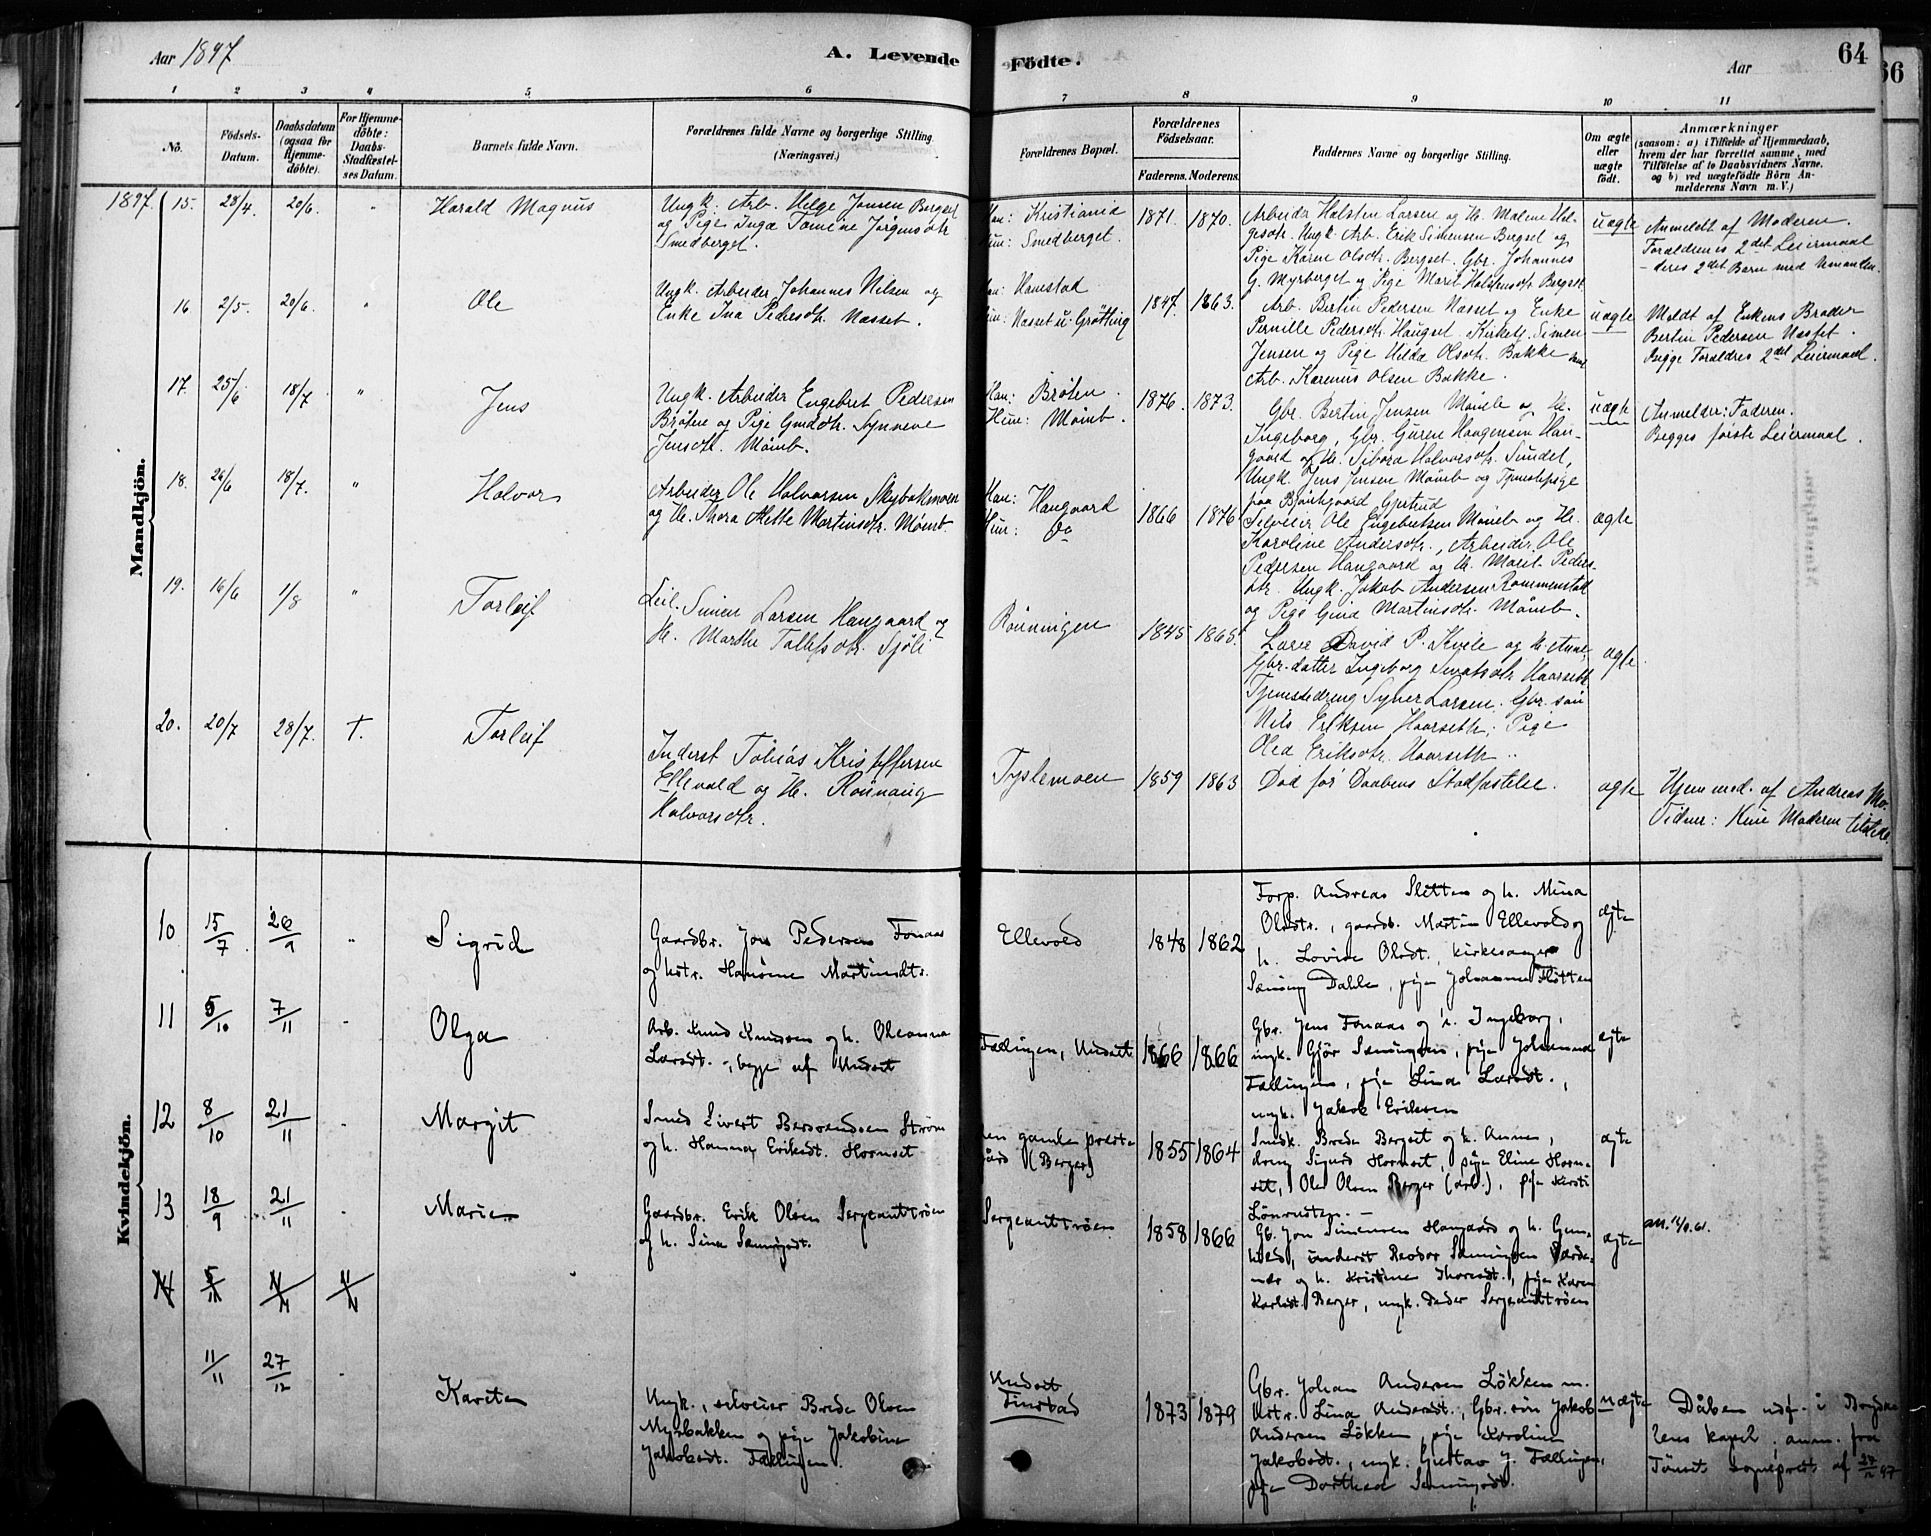 Aar 1897
A. Levende
Födte.
Aar
64
66
1 2 3 4 5 6 7 8 9 10 11
No.
Födsels-
Datum.
Daabsdatum
(ogsaa for
Hjemme-
döbte).
For Hjemme-
döbte:
Daabs-
Stadfæstel-
ses Datum.
Barnets fulde Navn.
Forældrenes fulde Navne og borgerlige Stilling
(Næringsvei.)
Forældrenes Bopæl.
Forældrenes
Födselsaar.
Faderens. Moderens.
Faddernes Navne og borgerlige Stilling.
Om ægte
eller
uægte
födt.
Anmærkninger
(saasom: a) i Tilfælde af Hjemmedaab,
hvem der har forrettet samme, med
Tilföielse af to Daabsvidners Navne.
og b) ved uægtefödte Börn An-
melderens Navn m. V.)
Mandkjön.
1897. 15. 28/4. 20/6. " Harald Magnus
Ungk. Arb. Helge Jonsen Bergset
og Pige Inga Tomine Jørgensdtr.
Smedberget.
Han: Kristiania
Hun: Smedberget.
1871. 1870.
Arbeider Halsten Larsen og H. Malene Hel-
gesdtr. Ungk. Arb. Erik Simensen Bergset og
Pige Karen Olsdtr. Bergset. Gbr. Johannes
G. Myrberget og Pige Marit Halstensdtr. Bergset
uægte
Anmeldt af Moderen.
Forældrenes 2det Leiermaal
- deres 2det Barn med hinanden.
16 2/5. 20/6. " Ole
Ungk. Arbeider Johannes Nilsen og
Enke Ina Pedersdtr. Næsset.
Han: Hanestad
Hun: Næsset u. Grötting
1847. 1863.
Arb. Bertin Pedersen Næsset og Enke
Pernille Pedersdtr. Haugset. Kirketj. Simen
Jensen og Pige Hilda Olsdtr. Bakke
Arb. Karenus Olsen Bakke.
uægte
Meldt af Enkens Broder
Bertin Pedersen Næsset.
Begge Forældres 2det Leiermaal.
17. 25/6 18/7. " Jens
Ungk. Arbeider Engebret Pedersen
Bröten og Pige Gunda Synneve
Jensdtr. Mömb.
Han: Bröten.
Hun: Mömb.
1876. 1873.
Gbr. Bertin Jensen Mömb og H.
Ingeborg, Gbr. Guren Haagensen Han-
gaard og H. Sibora Halvorsdtr. Sundet,
Ungk. Jens Jensen Mömb og Tjenestepige
paa Björkgaard Gjertrud
uægte
Anmelder: Faderen.
Begges første Leiermaal.
18. 26/6 18/7. " Halvor
Arbeider Ole Halvorsen Skybakmoen
og H. Thora Mette Martinsdtr. Mömb.
Han: Hangaard
Hun: Do
1866 1876
Selveier Ole Engebretsen Mömb og H.
Karoline Andersdtr., Arbeider Ole
Pedersen Hangaard og H. Marit Peders-
dtr. Ungk. Jakob Andersen Rommenstad
og Pige Gina Martinsdtr. Mömb.
ægte
19. 16/6 1/8 " Torleif
Leil. Simen Larsen Hangaard og
H. Marthe Tollefsdtr. Sjöli
Rönningen
1845 1865.
Lærer David P. Kvile og H. Anne,
Gbr. datter Ingeborg Haarseth
Tjenestedreng Syver Larsen. Gbr. sön
Nils Eriksen Haarseth. Pige
Olea Eriksdtr. Haarseth.
ægte
20. 20/7 28/7. †. Torleif
Inderst Tobias Kristoffersen
Ellevold og H. Rönnaug
Halvorsdtr.
Tyslemoen
1859 1863
Död för Daabens Stadfæstelse.
ægte
Hjemmed. af Andreas Mo.
Vidner: Kun Moderen tilstede.
Kvindekjön.
10 15/7. 26/9 " Sigrid
Gaardbr. Jon Pedersen Fonaas
og hstr. Hansine Martinsdtr.
Ellevold
1848 1862
Forp. Andreas Sletten og h. Mina
Olsdtr., gaardb. Martin Ellevold og
h. Lovise Olsdt., kirkesanger
Sæming Dahle, pige Johanne Fløtten
ægte
11 5/10 7/11 Olga
Arb. Knud Knudsen og h. Oleanna
Larsdt. -, begge af Undset
Fællingen, Undset
1866 1866
Gbr. Jens Fonaas og h. Ingeborg,
ungk. Gjör Sæmingsen, pige Johanna
Fællingen, pige Lina Larsdt.,
ungk. Jakob Eriksen
ægte
12 8/10 21/11 Margit
Smed Sivert Berntsen Ström
og h. Hanna Eriksdt. Hornset
den gamle preste
gård (Berger)
1855 1864
Smedk. Brede Bergset og h. Anne,
dreng Sigurd Hornset, pige Eline Horn-
set, Ole Olsen Berger (arb.), pige Kersti
Lönrusten. -
ægte
13 18/9 21/11 Marie
Gaardbr. Erik Olsen Sergeanttröen
og h. Sina Sæmingsdt.
Sergeanttröen
1858 1866
Gb. Jon Simensen Hangaard og h. Gun-
hild, inderst Peder Sæmingsen
og h. Kristine Thoresdt., pige Karen
Karlsdt. Berger, ungk. Peder Sergeanttröen
ægte
att. 12/9. 61.
14 5/11
11/11 27/12 Karste
Ungk., selveier Brede Olsen
Myrbakken og pige Jakobine
Jakobsdt. Fællingen.
Undset
Finstad
1873 1879
Gbr. Johan Andersen Lökken m.
Hstr. Lina Andersdt., Gbr. sön Jakob
Andersen Lökken, pige Karoline
Jakobsdt., ungk. Gustav J. Fællingen,
pige Dorthea Sæmingsdt.
uægte
Dåben udf. i Brydalens
kapel, anm. fra
Tönset sogneprest af 27/12 97